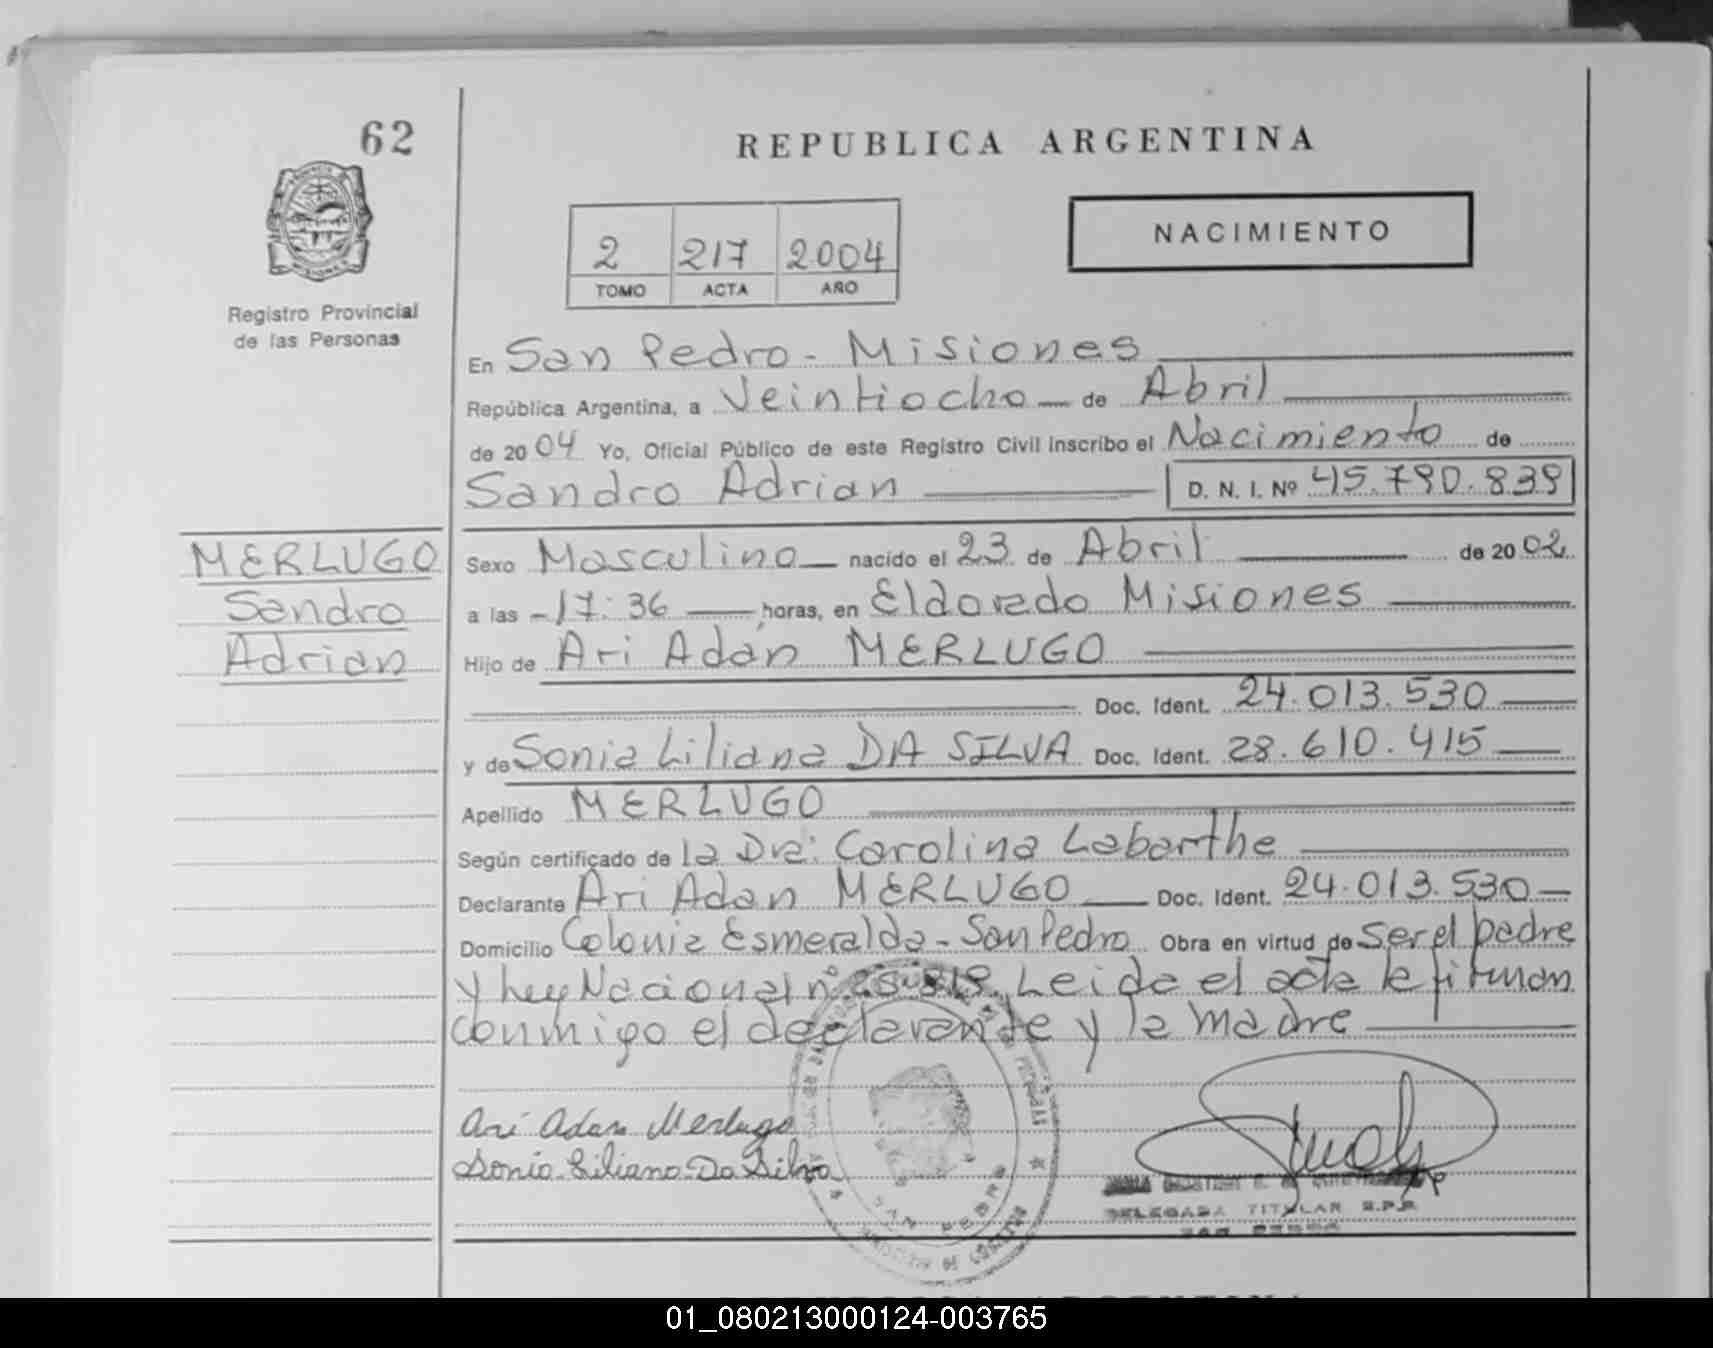 62
REPUBLICA ARGENTINA
NACIMIENTO
2 217 2004
TOMO ACTA AÑO
Registro Provincial
de las Personas
En San Pedro - Misiones
República Argentina, a Veintiocho de Abril
de 2004 Yo, Oficial Público de este Registro Civil inscribo el Nacimiento de
Sandro Adrian D. N. I. Nº 45.790.839
MERLUGO
Sandro
Adrian
Sexo Masculino nacido el 23 de Abril de 2002
a las -17:36 horas, en Eldorado Misiones
Hijo de Ari Adán MERLUGO
Doc. Ident. 24.013.530
y de Sonia Liliana DA SILVA Doc. Ident. 28.610.415
Apellido MERLUGO
Según certificado de la Dra: Carolina Labarthe
Declarante Ari Adan MERLUGO Doc. Ident. 24.013.530
Domicilio Colonia Esmeralda - San Pedro Obra en virtud de Ser el padre
y Ley Nacional nº 25.819. Leida el acta la firman
conmigo el declarante y la madre
Ari Adan Merlugo
Sonia Liliana Da Silva
SAN PEDRO
DELEGADA TITULAR R.P.P.
SAN PEDRO
01_080213000124-003765